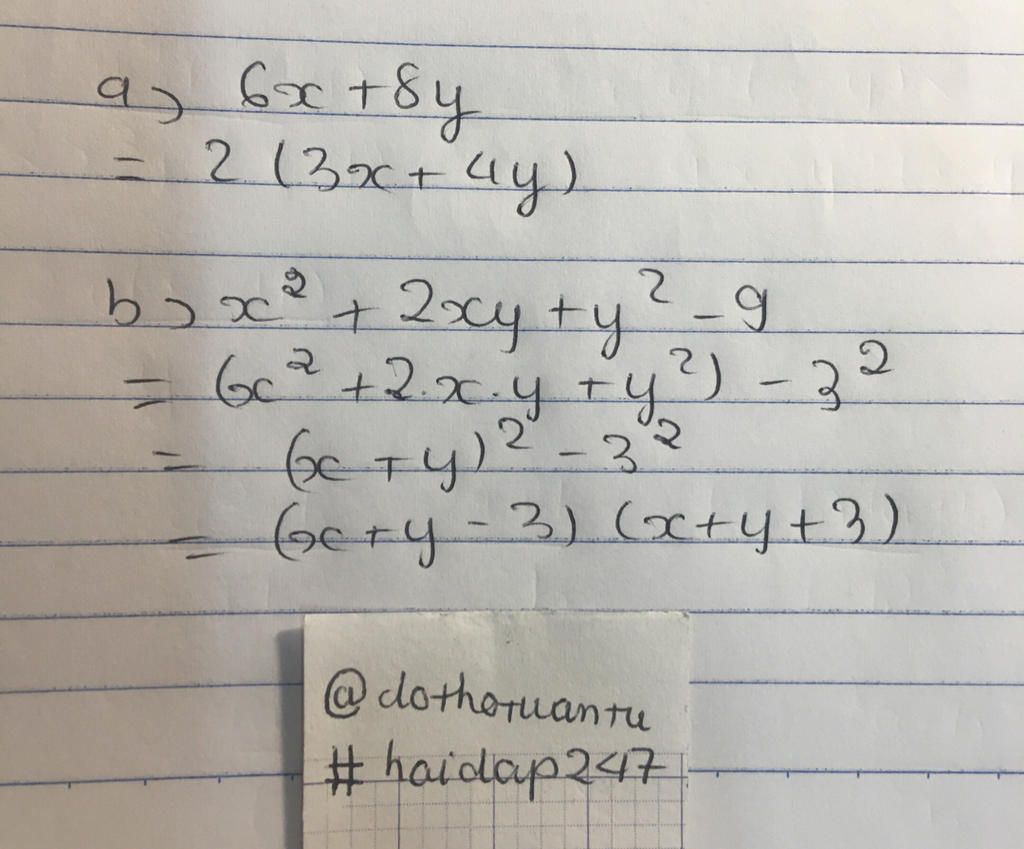 a) 6x + 8y
= 2 (3x + 4y)
b) x² + 2xy + y² - 9
= (x² + 2.x.y + y²) - 3²
= (x + y)² - 3²
= (x + y - 3) (x + y + 3)
@dothotuantu
# haidap247